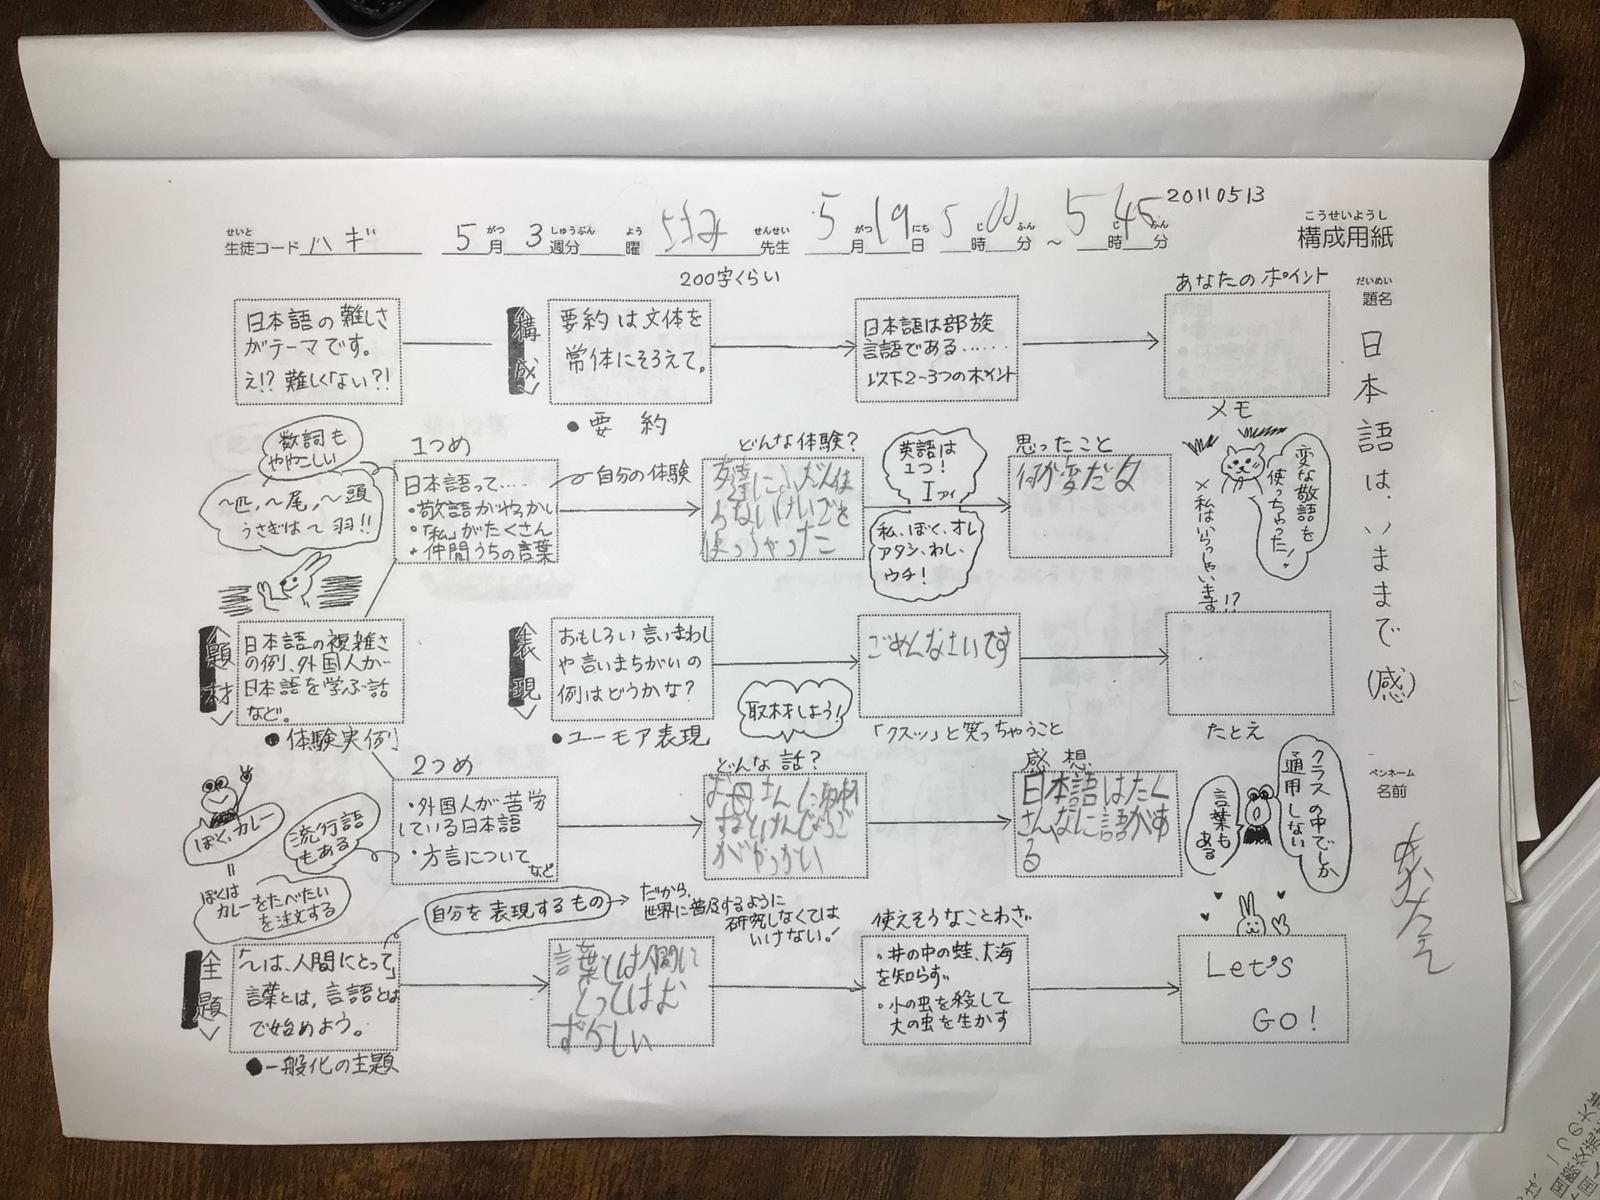 20110513
こうせいようし
構成用紙
せいと
生徒コード ハギ
がつ しゅうぶん よう せんせい がつ にち じ ふん じ ふん
5月3週分 曜 先生 5月19日5時00分～5時45分
200字くらい
だいめい
題名
日本語は、いままで(感)
ペンネーム
名前
構成
日本語の難しさ
がテーマです。
え!?難しくない?!
要約は文体を
常体にそろえて。
●要約
日本語は部族
言語である……
以下2-3つのポイント
あなたのポイント
メモ
数詞も
ややこしい
～匹、～尾、～頭
うさぎは～羽!!
1つめ
日本語って……
・敬語がややこし
・「私」がたくさん
・仲間うちの言葉
自分の体験
どんな体験？
友達にふだんは
わない けいごを
つかっちゃった
英語は
1つ！
I アイ
私、ぼく、オレ
アタシ、わし、
ウチ！
思ったこと
何か変だな
変な敬語を
使っちゃった！
×私はいらっしゃいます!?
題材
日本語の複雑さ
の例、外国人が
日本語を学ぶ話
など。
●体験実例
表現
おもしろい言いまわし
や言いまちがいの
例はどうかな？
●ユーモア表現
取材しよう！
ごめんなさいです
「クスッ」と笑っちゃうこと
たとえ
ぼく、カレー
＝
ぼくは
カレーをたべたい
を注文する
流行語
もある
2つめ
・外国人が苦労
している日本語
・方言について
など
どんな話？
お母さんに取材
するとけんじょうご
がやっかい
感想
日本語はたく
さんなに語があ
る
クラスの中でしか
通用しない
言葉も
ある
主題
「～は、人間にとって」
言葉とは、言語とは
で始めよう。
●一般化の主題
自分を表現するもの
だから、
世界に普及するように
研究しなくては
いけない。！
言葉とは人間に
とってはむ
ずらしい
使えそうなことわざ
・井の中の蛙、大海
を知らず
・小の虫を殺して
大の虫を生かす
Let's
GO!